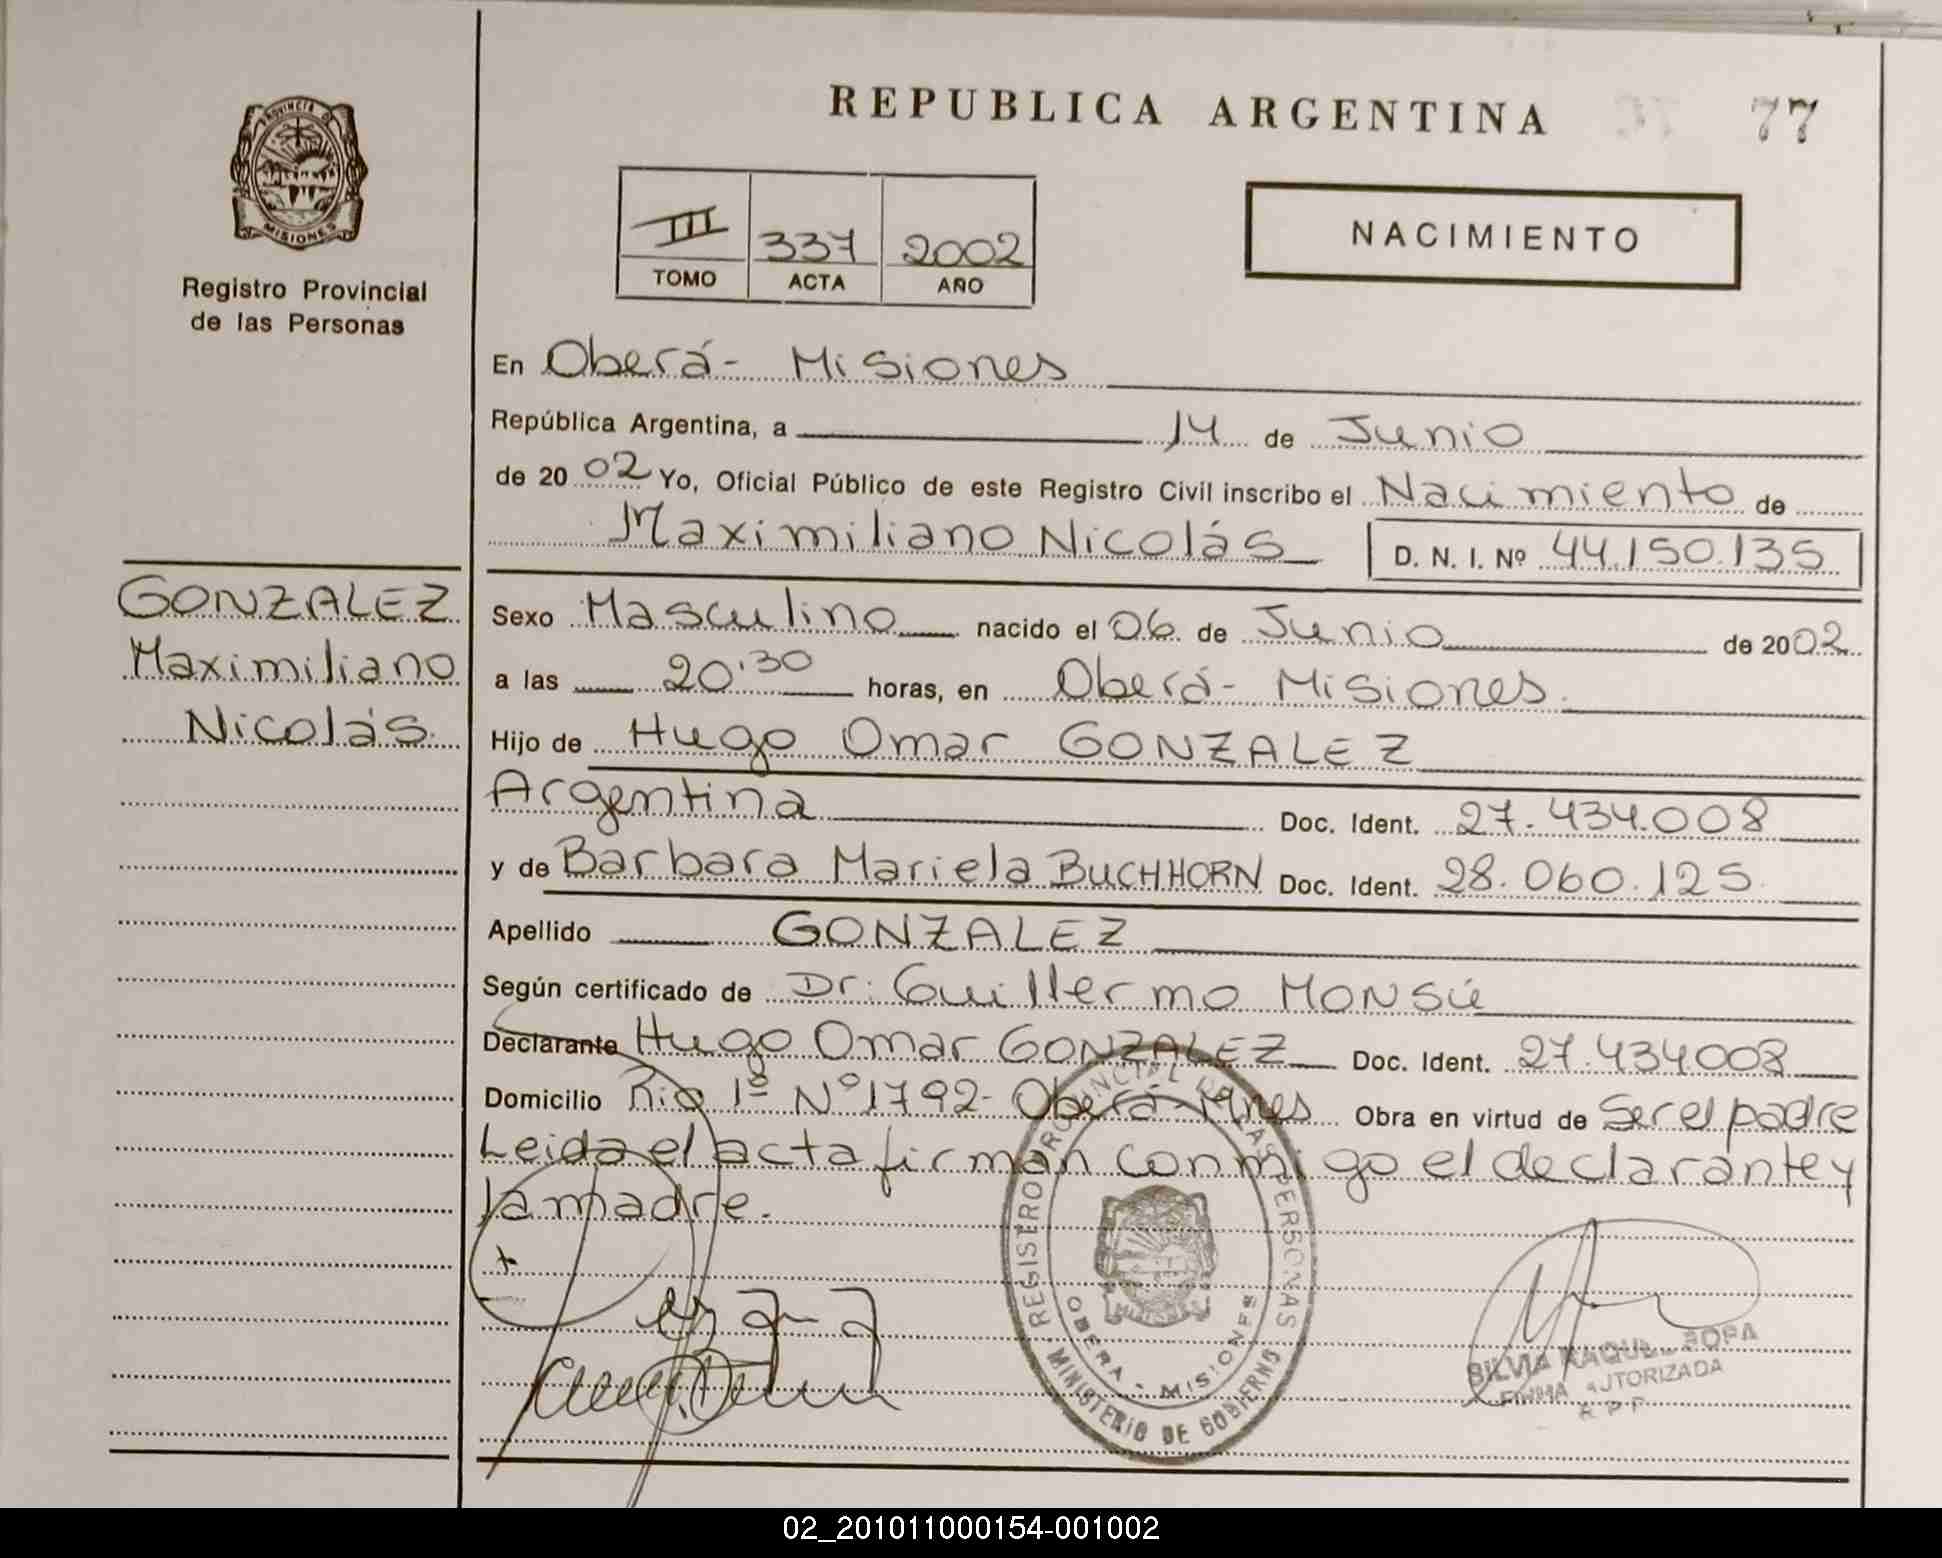 REPUBLICA ARGENTINA 77
PROVINCIA DE
MISIONES
Registro Provincial
de las Personas
III 337 2002
TOMO ACTA AÑO
NACIMIENTO
En Oberá - Misiones
República Argentina, a 14 de Junio
de 20 02 Yo, Oficial Público de este Registro Civil inscribo el Nacimiento de
Maximiliano Nicolás D. N. I. Nº 44.150.135
GONZALEZ
Maximiliano
Nicolás
Sexo Masculino nacido el 06 de Junio de 20 02
a las 20'30 horas, en Oberá - Misiones.
Hijo de Hugo Omar GONZALEZ
Argentina Doc. Ident. 27.434.008
y de Barbara Mariela BUCHHORN Doc. Ident. 28.060.125
Apellido GONZALEZ
Según certificado de Dr. Guillermo MONSÚ
Declarante Hugo Omar GONZALEZ Doc. Ident. 27.434008
Domicilio Rio 1º Nº 1792 - Oberá - Mnes Obra en virtud de Ser el padre
Leida el acta firman conmigo el declarante y
la madre.
REGISTRO PROVINCIAL DE LAS PERSONAS
OBERA - MISIONES
MINISTERIO DE GOBIERNO
SILVIA RAQUEL
FIRMA AUTORIZADA
R P P
02_201011000154-001002